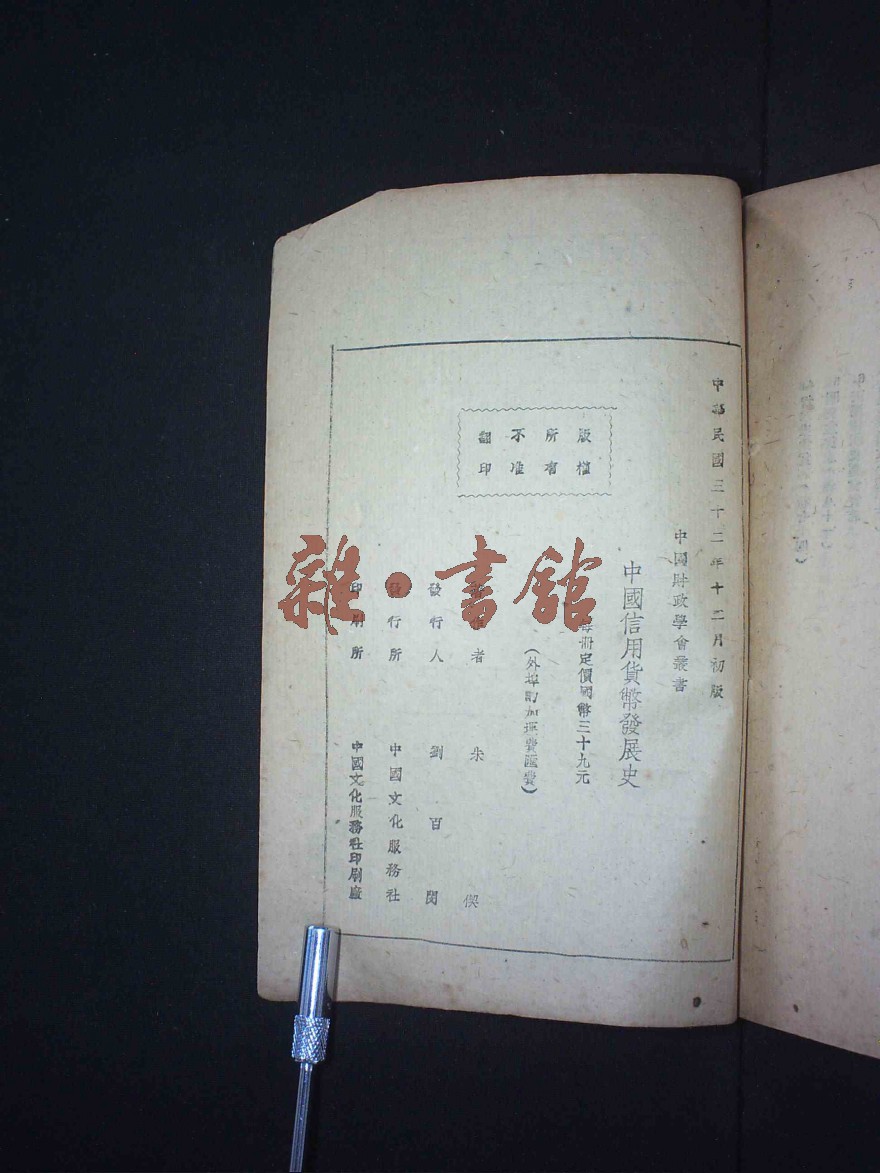 中華民國三十二年十二月初版
中國財政學會叢書
中國信用貨幣發展史
每冊定價國幣三十九元
(外埠酌加運費匯費)
版權
所有
不准
翻印
著作者 朱偰
發行人 劉百閔
發行所 中國文化服務社
印刷所 中國文化服務社印刷廠
雜·書館